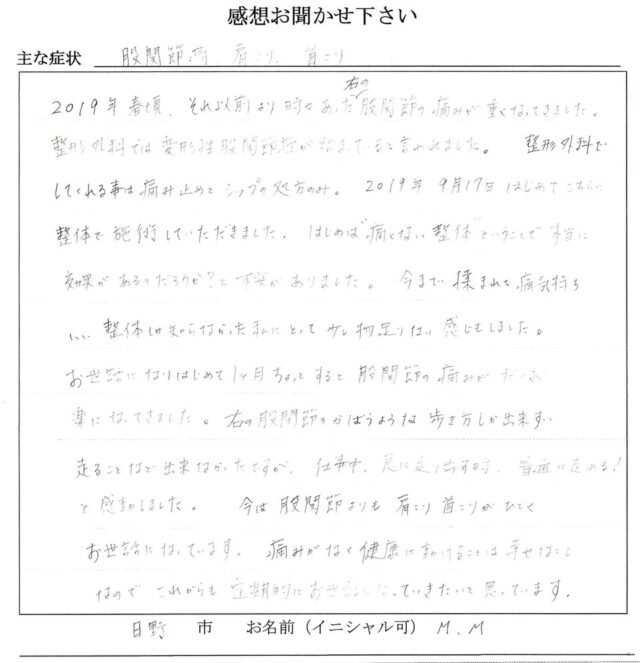 感想お聞かせ下さい
主な症状 股関節痛、肩こり、首こり
右の
2019年春頃、それ以前より時々あった股関節の痛みが重くなってきました。
整形外科では変形性股関節症が始まっていると言われました。 整形外科で
してくれる事は痛み止めとシップの処方のみ。 2019年 9月17日 はじめてこちらの
整体で施術していただきました。はじめは"痛くない整体"ということで本当に
効果があるのだろうか?と不安がありました。 今まで揉まれて痛気持ち
いい整体しか知らなかった私にとって少し物足りない感じもしました。
お世話になりはじめて1ヶ月ちょっとすると股関節の痛みがだいぶ
楽になってきました。右の股関節をかばうような歩き方しか出来ず
走ることなど出来なかったですが、仕事中、急に走り出す時、普通に走れる!
と感動しました。 今は股関節よりも肩こり首こりがひどく
お世話になっています。痛みがなく健康に動けることは幸せなこと
なので これからも定期的にお世話になっていきたいと思っています。
日野 市 お名前(イニシャル可) M.M